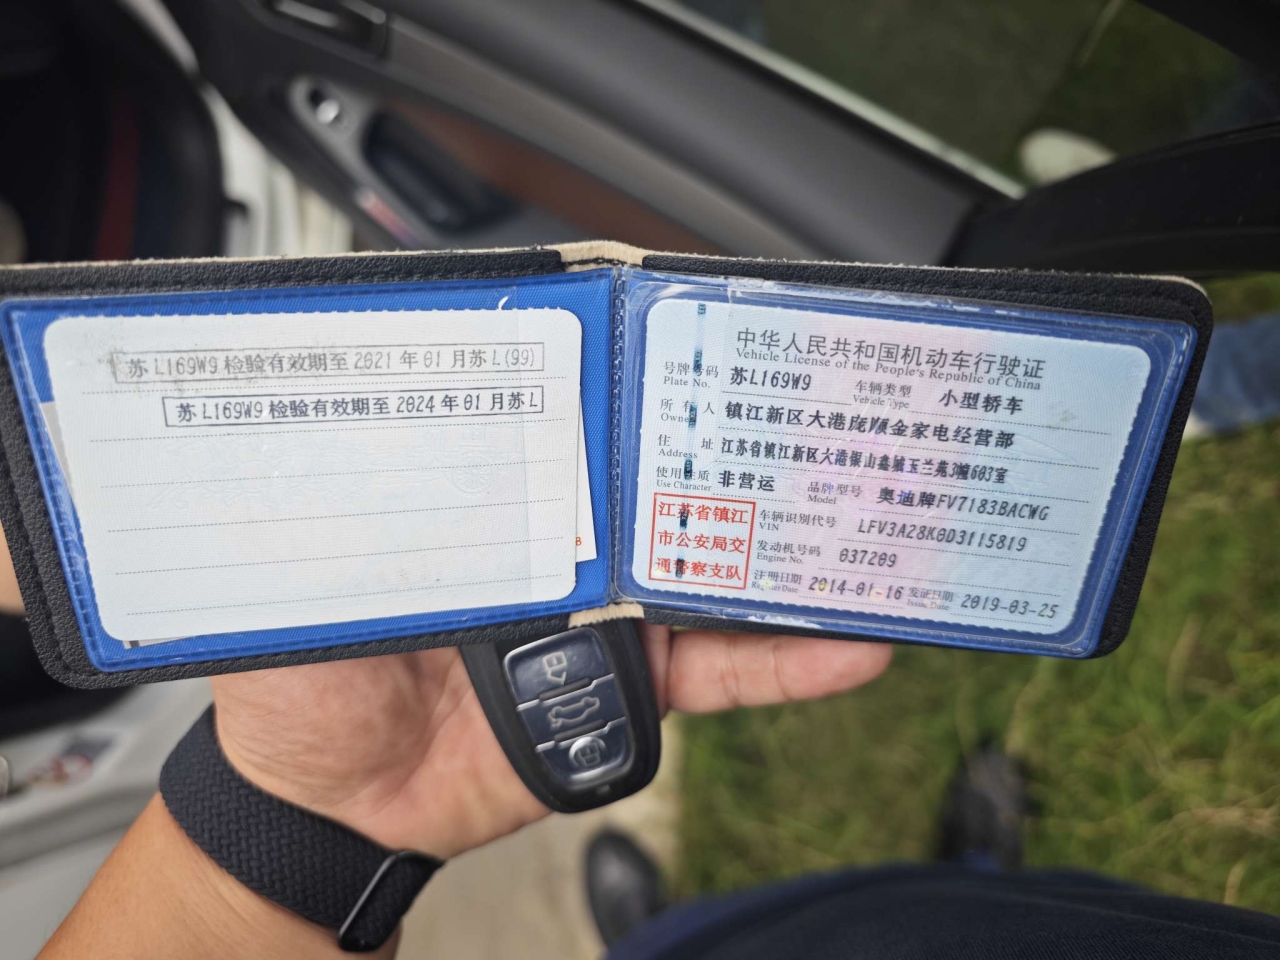 苏L169W9检验有效期至2021年01月苏L(99)
苏L169W9检验有效期至2024年01月苏L
中华人民共和国机动车行驶证
Vehicle License of the People's Republic of China
号牌号码 苏L169W9 车辆类型 小型轿车
Plate No. Vehicle Type
所有人 镇江新区大港庞顺金家电经营部
Owner
住址 江苏省镇江新区大港银山鑫城玉兰苑3幢603室
Address
使用性质 非营运 品牌型号 奥迪牌FV7183BACWG
Use Character Model
江苏省镇江
市公安局交
通警察支队
车辆识别代号 LFV3A28K0D3115819
VIN
发动机号码 037209
Engine No.
注册日期 2014-01-16 发证日期 2019-03-25
Register Date Issue Date
8